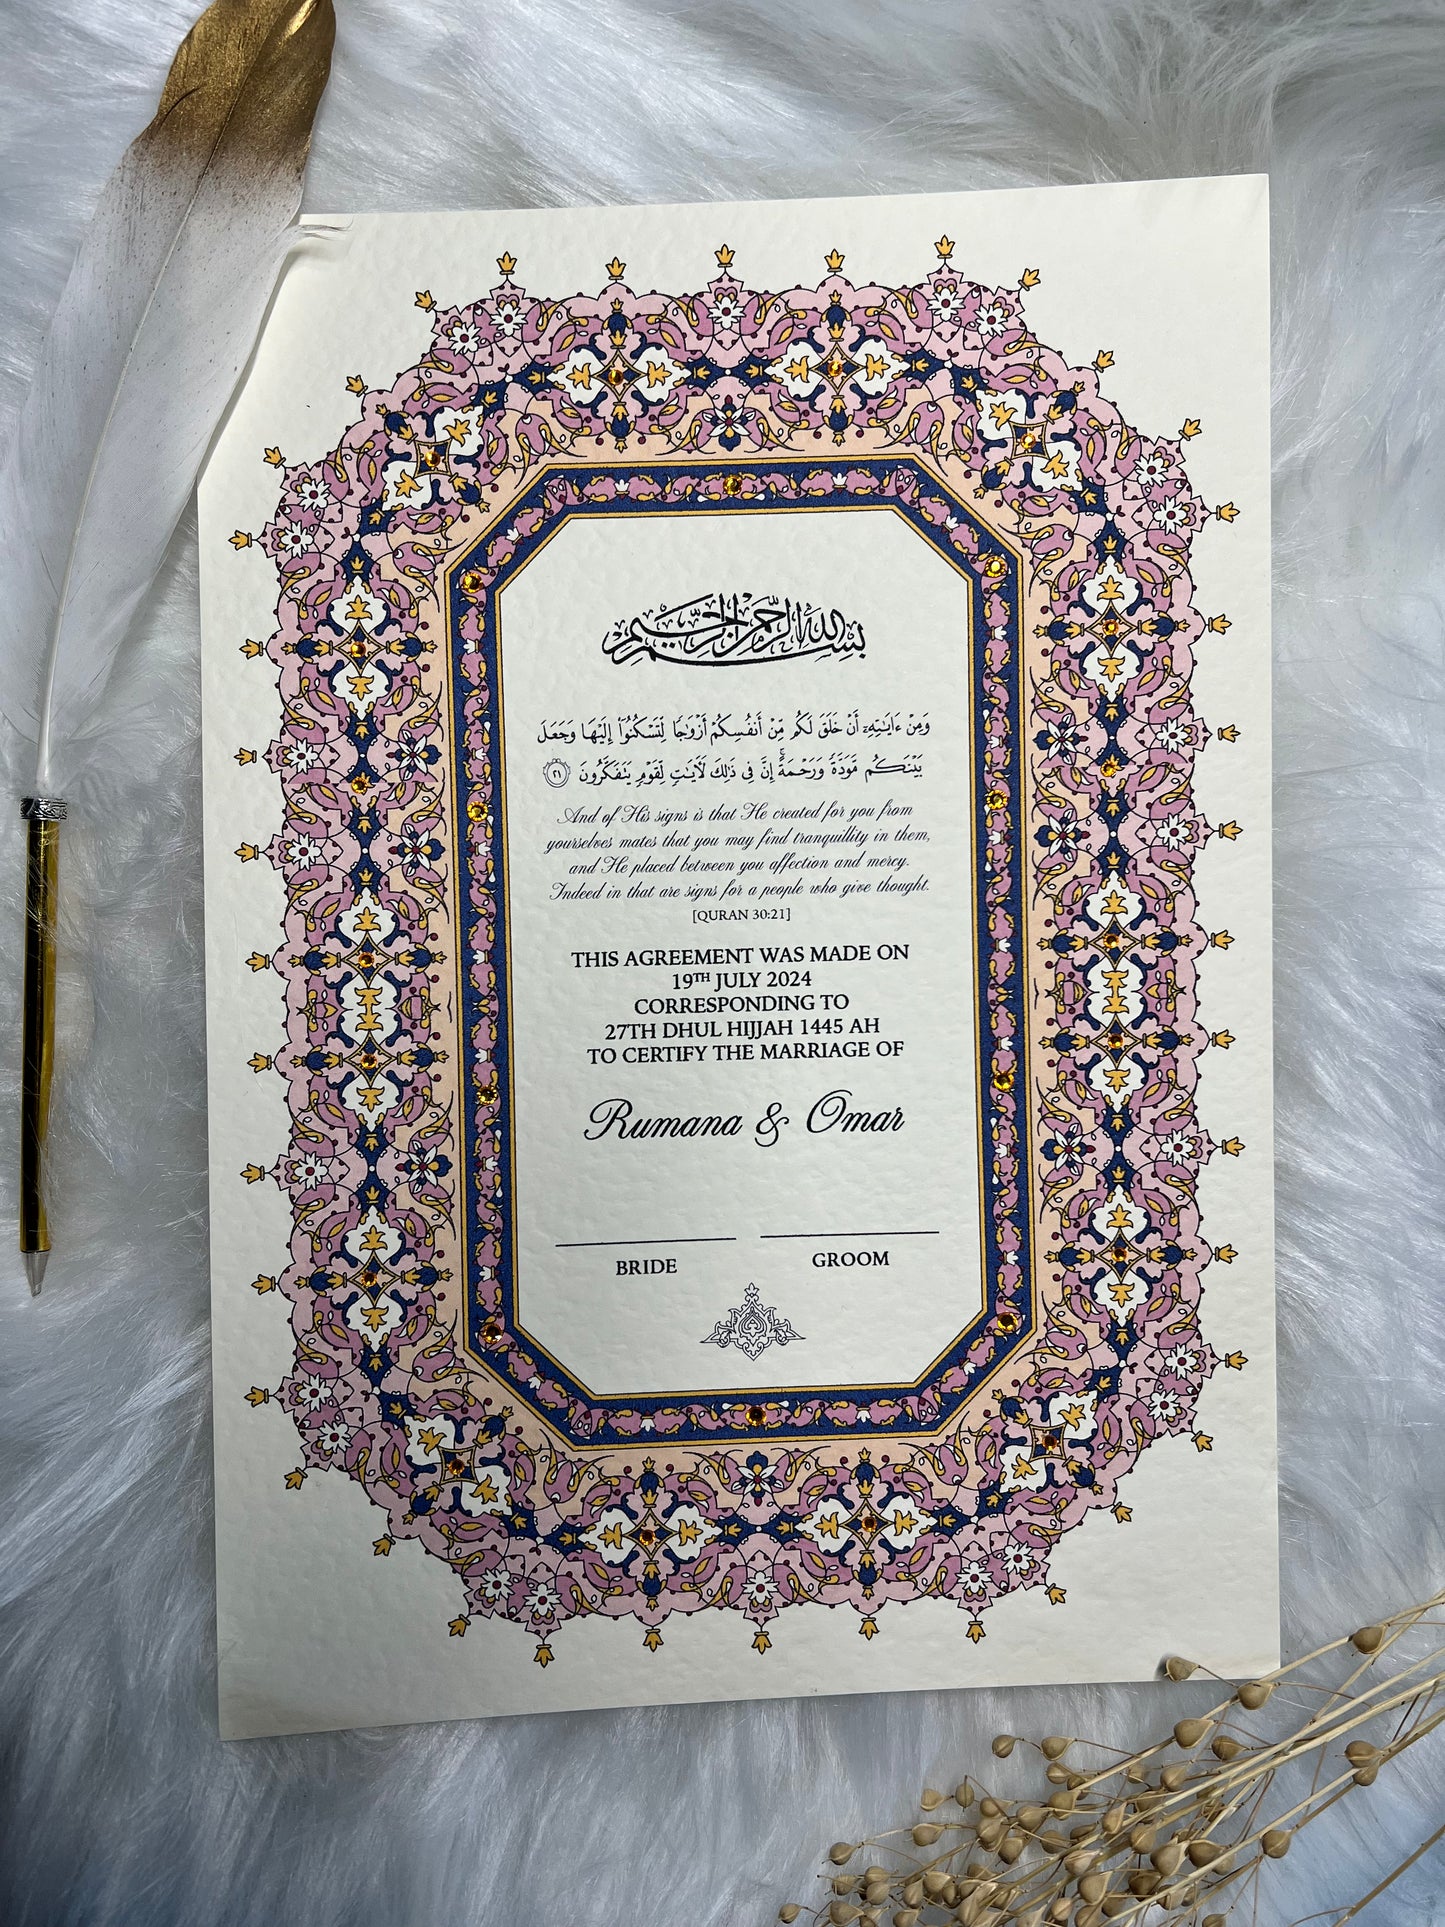 بسم الله الرحمن الرحيم
وَمِنْ ءَايَـٰتِهِۦٓ أَنْ خَلَقَ لَكُم مِّنْ أَنفُسِكُمْ أَزْوَٰجًا لِّتَسْكُنُوٓا۟ إِلَيْهَا وَجَعَلَ
بَيْنَكُم مَّوَدَّةً وَرَحْمَةً ۚ إِنَّ فِى ذَٰلِكَ لَـَٔايَـٰتٍ لِّقَوْمٍ يَتَفَكَّرُونَ ٢١
And of His signs is that He created for you from
yourselves mates that you may find tranquillity in them,
and He placed between you affection and mercy.
Indeed in that are signs for a people who give thought.
[QURAN 30:21]
THIS AGREEMENT WAS MADE ON
19TH JULY 2024
CORRESPONDING TO
27TH DHUL HIJJAH 1445 AH
TO CERTIFY THE MARRIAGE OF
Rumana & Omar
BRIDE GROOM